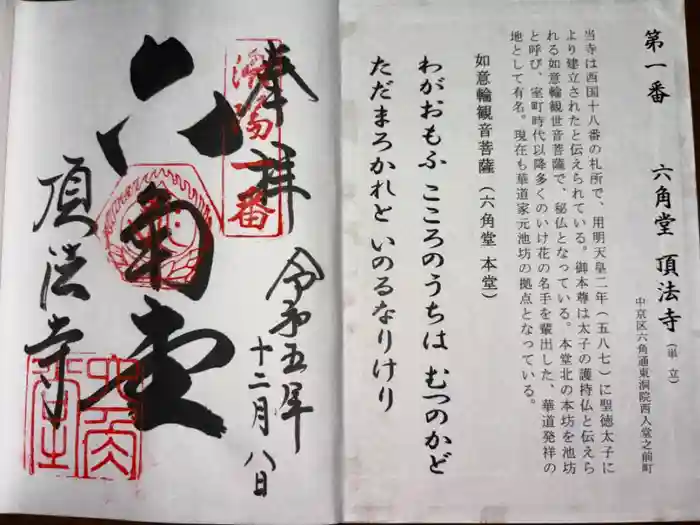 第一番 六角堂 頂法寺(単立)
中京区六角通東洞院西入堂之前町
当寺は西国十八番の札所で、用明天皇二年(五八七)に聖徳太子に
より建立されたと伝えられている。御本尊は太子の護持仏と伝えら
れる如意輪観世音菩薩で、秘仏となっている。本堂北の本坊を池坊
と呼び、室町時代以降多くのいけ花の名手を輩出した、華道発祥の
地として有名。現在も華道家元池坊の拠点となっている。
如意輪観音菩薩(六角堂 本堂)
わがおもふ こころのうちは むつのかど
ただまろかれと いのるなりけり
奉拝
洛陽一番
令和五年
十二月八日
六角堂
頂法寺